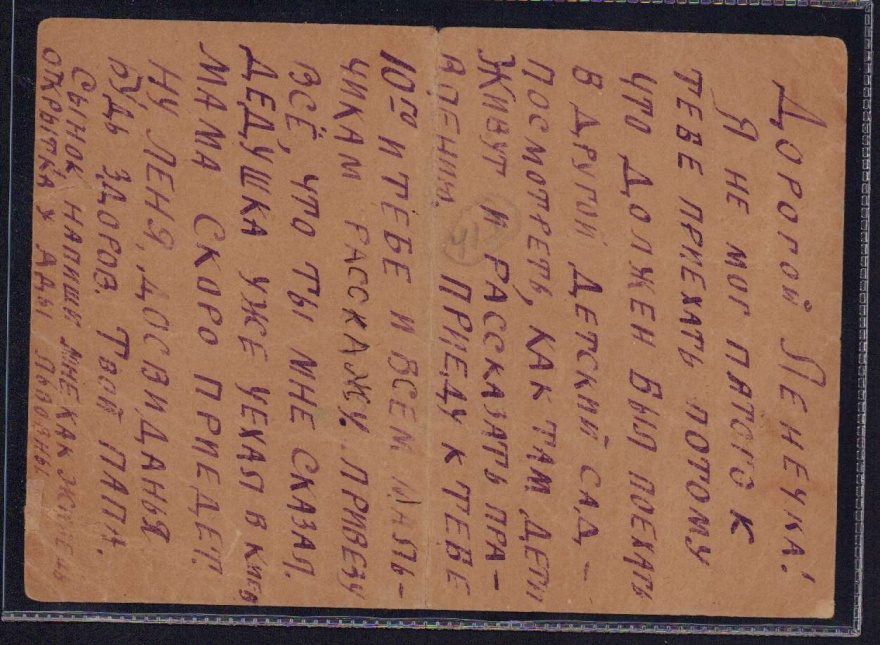 Дорогой Ленечка!
Я не мог пятого к
тебе приехать потому
что должен был поехать
в другой детский сад –
посмотреть, как там дети
живут и рассказать пра-
влению. Приеду к тебе
10го и тебе и всем маль-
чикам расскажу. Привезу
всё, что ты мне сказал.
Дедушка уже уехал в Киев
Мама скоро приедет.
Ну Леня, досвиданья
будь здоров. Твой папа.
Сынок, напиши мне как живешь
открытка у Ады Львовны